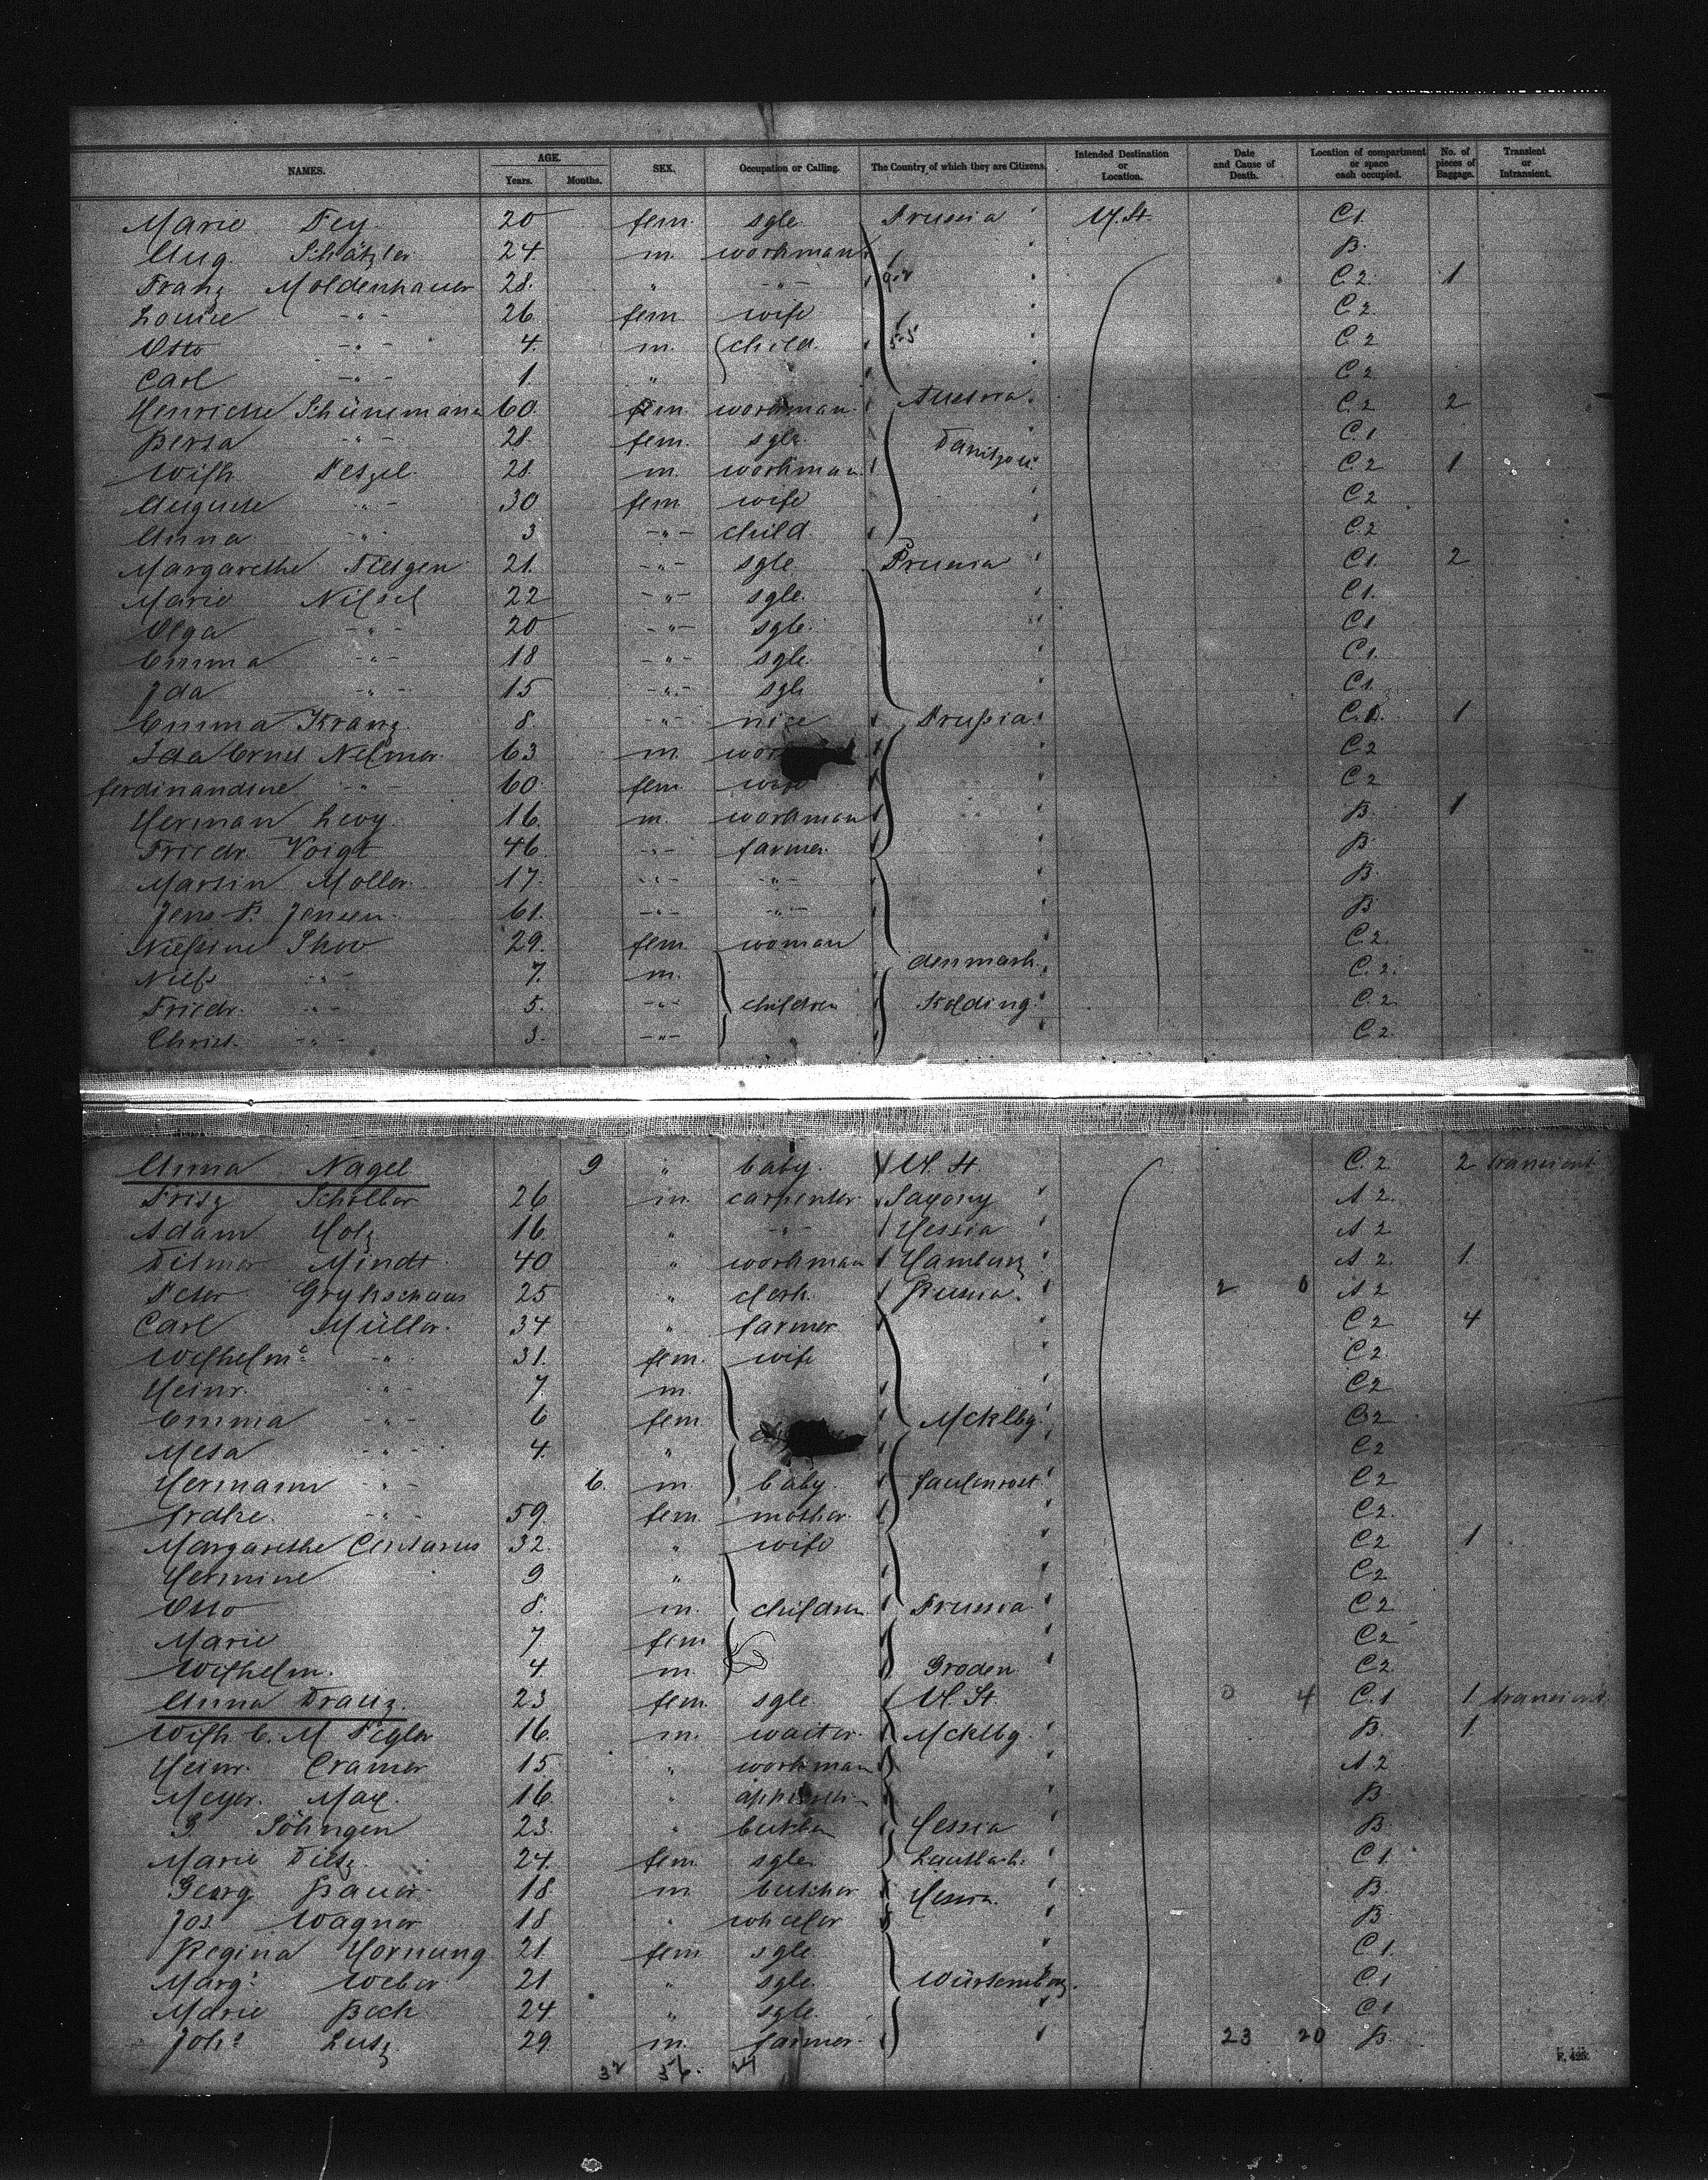 NAMES. AGE. Years. Months. SEX. Occupation or Calling. The Country of which they are Citizens. Intended Destination or Location. Date and Cause of Death. Location of compartment or space each occupied. No. of pieces of Baggage. Transient or Intransient.
Marie Fey 20 fem. sgle. Prussia U. St. C1.
Aug. Schätzler 24. m. workman B.
Franz Moldenhauer 28. " -"- C.2. 1
Louise -"- 26 fem. wife C.2
Otto -"- 4. m. child. C.2
Carl -"- 1. " C.2
Henriette Schünemann 60. fem. workman. C.2 2
-"- 28. fem. sgle. C.1
Wilh. Petzel 28. m. workman. C.2 1
Auguste -"- 30 fem. wife C.2
Anna " 3 -"- child. C.2
Margarethe Tietgen 21. -"- sgle. Prussia C1. 2
Marie 22 -"- sgle. C1.
Olga -"- 20 -"- sgle. C.1
Emma -"- 18 -"- sgle. C1.
Ida -"- 15 -"- sgle C1.
Emma Kranz 8. -"- Prussia. 1
63 m. C2
ferdinandine -"- 60. fem. wife C2
Herman Levy. 16. m. workman B. 1
Friedr. Voigt 46. -"- farmer. B.
Martin Moller. 17. -"- -"- B.
Jens P. Jensen. 61. -"- -"- B
29. fem. woman C.2.
Niels -"- 7. m. denmark. C.2.
Friedr. -"- 5. -"- children Kolding. C.2
Christ. -"- 3. -"- C.2
Anna Nagel 9 " baby. U. St. C.2 2 transient.
Fritz 26 m. carpenter. Saxony A 2.
Adam Hotz 16. " -"- Hessia A 2
Mindt. 40 " workman Hamburg A 2. 1.
Peter 25 " clerk. Russia. 2 0 A 2
Carl Müller. 34 " farmer C 2 4
Wilhelm.e -"- 31. fem. wife C 2.
Heinr. -"- 7. m. C2
Emma -"- 6 fem. Mcklbg. C2
Meta -"- 4. " C2
Hermann -"- 6. m. baby. C2
-"- 59. fem. mother. C2.
Margarethe 32. " wife C2 1
Hermine 9 " C2
Otto 8. m. children. Prussia C2
Marie 7 fem. C2
Wilhelm. 4. m. Groden C2
Anna Drautz. 23 fem. sgle. U. St. 0 4 C.1 1 transient.
Wilh. C. M. 16. m. waiter. Mcklbg. B. 1.
Heinr. Cramer 15 " workman A 2
Meyer. Max. 16. " B
S. Söhngen 23. " Hessia B.
Marie Dietz. 24. fem. sgle. C1.
Georg Bauer. 18 m butcher Hessia. B.
Jos Wagner 18 " B
Regina Hornung. 21. fem. sgle. C1.
Marg.e Weber 21 " sgle. Würtemberg. C.1
Marie Beck 24 " sgle. C1
Joh.s Lutz. 29 m. farmer. 23 20 B.
32 56. 24